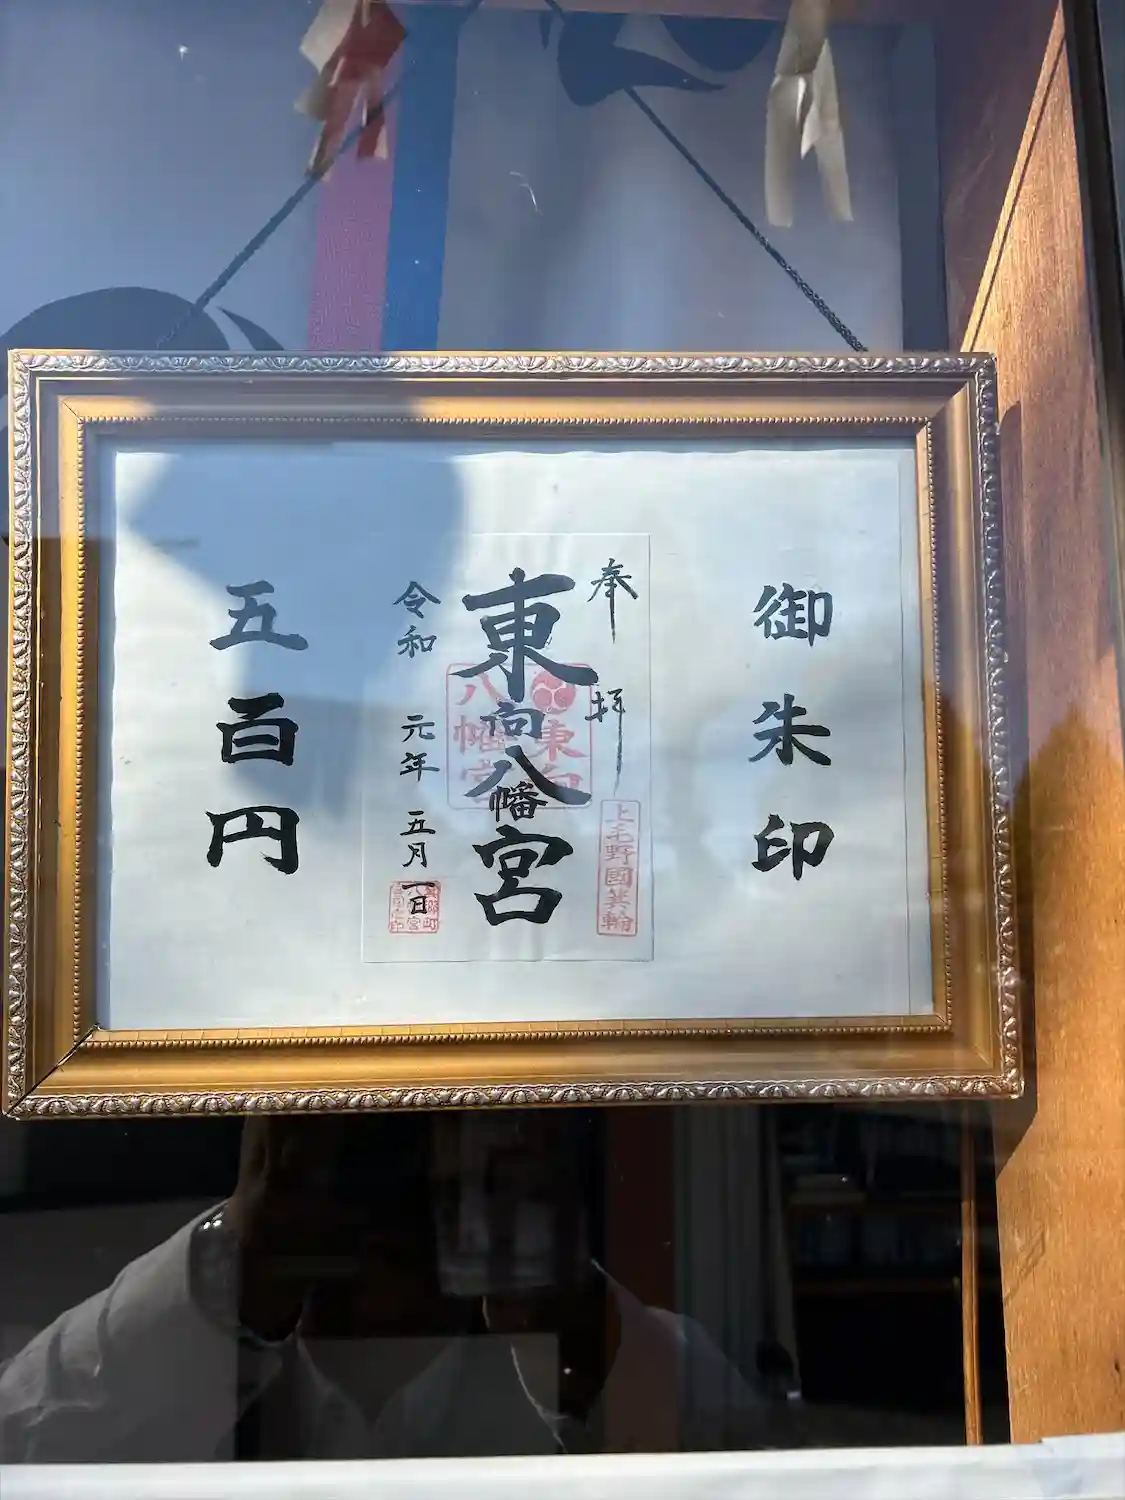 御朱印
奉拝
上毛野國箕輪
東向八幡宮
東向
八幡宮
令和元年五月一日
五百円